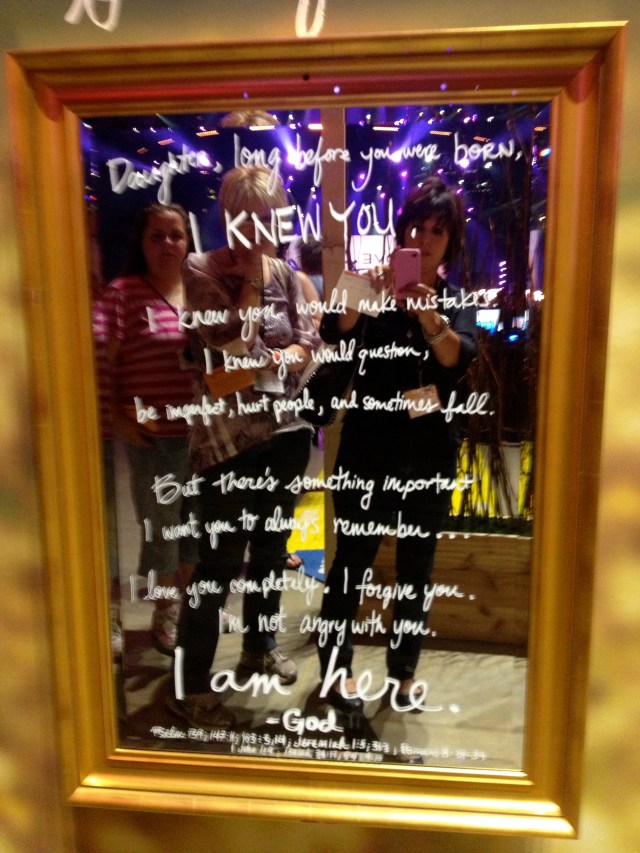 Daughter, long before you were BORN,
I KNEW YOU
I knew you would make mistakes.
I knew you would question,
be imperfect, hurt people, and sometimes fall.
But there's something important
I want you to always remember....
I love you completely. I forgive you.
I'm not angry with you.
I am here.
-God
Psalm 139; Jeremiah 1:5; 31:3; Romans